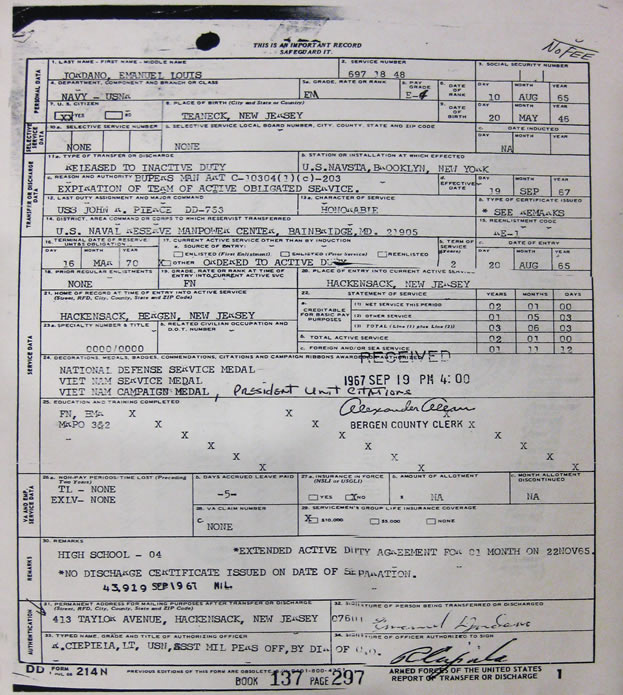 THIS IS AN IMPORTANT RECORD
SAFEGUARD IT.
No FEE
PERSONAL DATA
1. LAST NAME - FIRST NAME - MIDDLE NAME
JORDANO, EMANUEL LOUIS
2. SERVICE NUMBER
697 18 48
3. SOCIAL SECURITY NUMBER
4. DEPARTMENT, COMPONENT AND BRANCH OR CLASS
NAVY - USNR
5a. GRADE, RATE OR RANK
b. PAY GRADE
6. DATE OF RANK
DAY MONTH YEAR
10 AUG 65
7. U.S. CITIZEN
YES NO
8. PLACE OF BIRTH (City and State or Country)
TEANECK, NEW JERSEY
9. DATE OF BIRTH
DAY MONTH YEAR
20 MAY 46
SELECTIVE SERVICE DATA
10 a. SELECTIVE SERVICE NUMBER
NONE
b. SELECTIVE SERVICE LOCAL BOARD NUMBER, CITY, COUNTY, STATE AND ZIP CODE
NONE
c. DATE INDUCTED
DAY MONTH YEAR
NA
TRANSFER OR DISCHARGE DATA
11a. TYPE OF TRANSFER OR DISCHARGE
RELEASED TO INACTIVE DUTY
b. STATION OR INSTALLATION AT WHICH EFFECTED
U.S.NAVSTA, BROOKLYN, NEW YORK
c. REASON AND AUTHORITY BUPERS MAN ART C-10304(1)(c)-203
EXPIRATION OF TEAM OF ACTIVE OBLIGATED SERVICE.
d. EFFECTIVE DATE
DAY MONTH YEAR
19 SEP 67
12. LAST DUTY ASSIGNMENT AND MAJOR COMMAND
USS JOHN R. PIERCE DD-753
13a. CHARACTER OF SERVICE
HONORABLE
b. TYPE OF CERTIFICATE ISSUED
* SEE REMARKS
14. DISTRICT, AREA COMMAND OR CORPS TO WHICH RESERVIST TRANSFERRED
U.S. NAVAL RESERVE MANPOWER CENTER, BAINBRIDGE, MD. 21905
15. REENLISTMENT CODE
RE-1
16. TERMINAL DATE OF RESERVE UMT&S OBLIGATION
DAY MONTH YEAR
16 MAR 70
17. CURRENT ACTIVE SERVICE OTHER THAN BY INDUCTION
a. SOURCE OF ENTRY:
ENLISTED (First Enlistment) ENLISTED (Prior Service) REENLISTED
X OTHER ORDERED TO ACTIVE DU
b. TERM OF SERVICE (Years)
2
c. DATE OF ENTRY
DAY MONTH YEAR
20 AUG 65
18. PRIOR REGULAR ENLISTMENTS
NONE
19. GRADE, RATE OR RANK AT TIME OF ENTRY INTO CURRENT ACTIVE SVC
FN
20. PLACE OF ENTRY INTO CURRENT ACTIVE SERVICE
HACKENSACK, NEW JERSEY
SERVICE DATA
21. HOME OF RECORD AT TIME OF ENTRY INTO ACTIVE SERVICE
(Street, RFD, City, County, State and ZIP Code)
HACKENSACK, BERGEN, NEW JERSEY
22. STATEMENT OF SERVICE
YEARS MONTHS DAYS
a. CREDITABLE FOR BASIC PAY PURPOSES
(1) NET SERVICE THIS PERIOD 02 01 00
(2) OTHER SERVICE 01 05 03
(3) TOTAL (Line (1) plus Line (2)) 03 06 03
b. TOTAL ACTIVE SERVICE 02 01 00
c. FOREIGN AND/OR SEA SERVICE 01 11 12
23a. SPECIALTY NUMBER & TITLE
0000/0000
b. RELATED CIVILIAN OCCUPATION AND D.O.T. NUMBER
24. DECORATIONS, MEDALS, BADGES, COMMENDATIONS, CITATIONS AND CAMPAIGN RIBBONS
RECEIVED
1967 SEP 19 PM 4:00
NATIONAL DEFENSE SERVICE MEDAL
VIET NAM SERVICE MEDAL
VIET NAM CAMPAIGN MEDAL, President Unit Citations
25. EDUCATION AND TRAINING COMPLETED
BERGEN COUNTY CLERK X
X X X X X X X X X X X
VA AND EMP. SERVICE DATA
26a. NON-PAY PERIODS/TIME LOST (Preceding Two Years)
TL - NONE
EXLV- NONE
b. DAYS ACCRUED LEAVE PAID
-5-
27a. INSURANCE IN FORCE (NSLI or USGLI)
YES NO
b. AMOUNT OF ALLOTMENT
NA
c. MONTH ALLOTMENT DISCONTINUED
NA
28. VA CLAIM NUMBER
C. NONE
29. SERVICEMEN'S GROUP LIFE INSURANCE COVERAGE
X $10,000 $5,000 NONE
REMARKS
30. REMARKS
HIGH SCHOOL - 04 *EXTENDED ACTIVE DUTY AGREEMENT FOR 01 MONTH ON 22NOV65.
*NO DISCHARGE CERTIFICATE ISSUED ON DATE OF SEPARATION.
43,919 SEP 1967 MIL
AUTHENTICATION
31. PERMANENT ADDRESS FOR MAILING PURPOSES AFTER TRANSFER OR DISCHARGE
(Street, RFD, City, County, State and ZIP Code)
413 TAYLOR AVENUE, HACKENSACK, NEW JERSEY 07601
32. SIGNATURE OF PERSON BEING TRANSFERRED OR DISCHARGED
33. TYPED NAME, GRADE AND TITLE OF AUTHORIZING OFFICER
R.CIEPIELA, LT, USN, ASST MIL PERS OFF, BY DIR OF C.O.
34. SIGNATURE OF OFFICER AUTHORIZED TO SIGN
DD FORM 214N
PREVIOUS EDITIONS OF THIS FORM ARE OBSOLETE
BOOK 137 PAGE 297
ARMED FORCES OF THE UNITED STATES
REPORT OF TRANSFER OR DISCHARGE
1